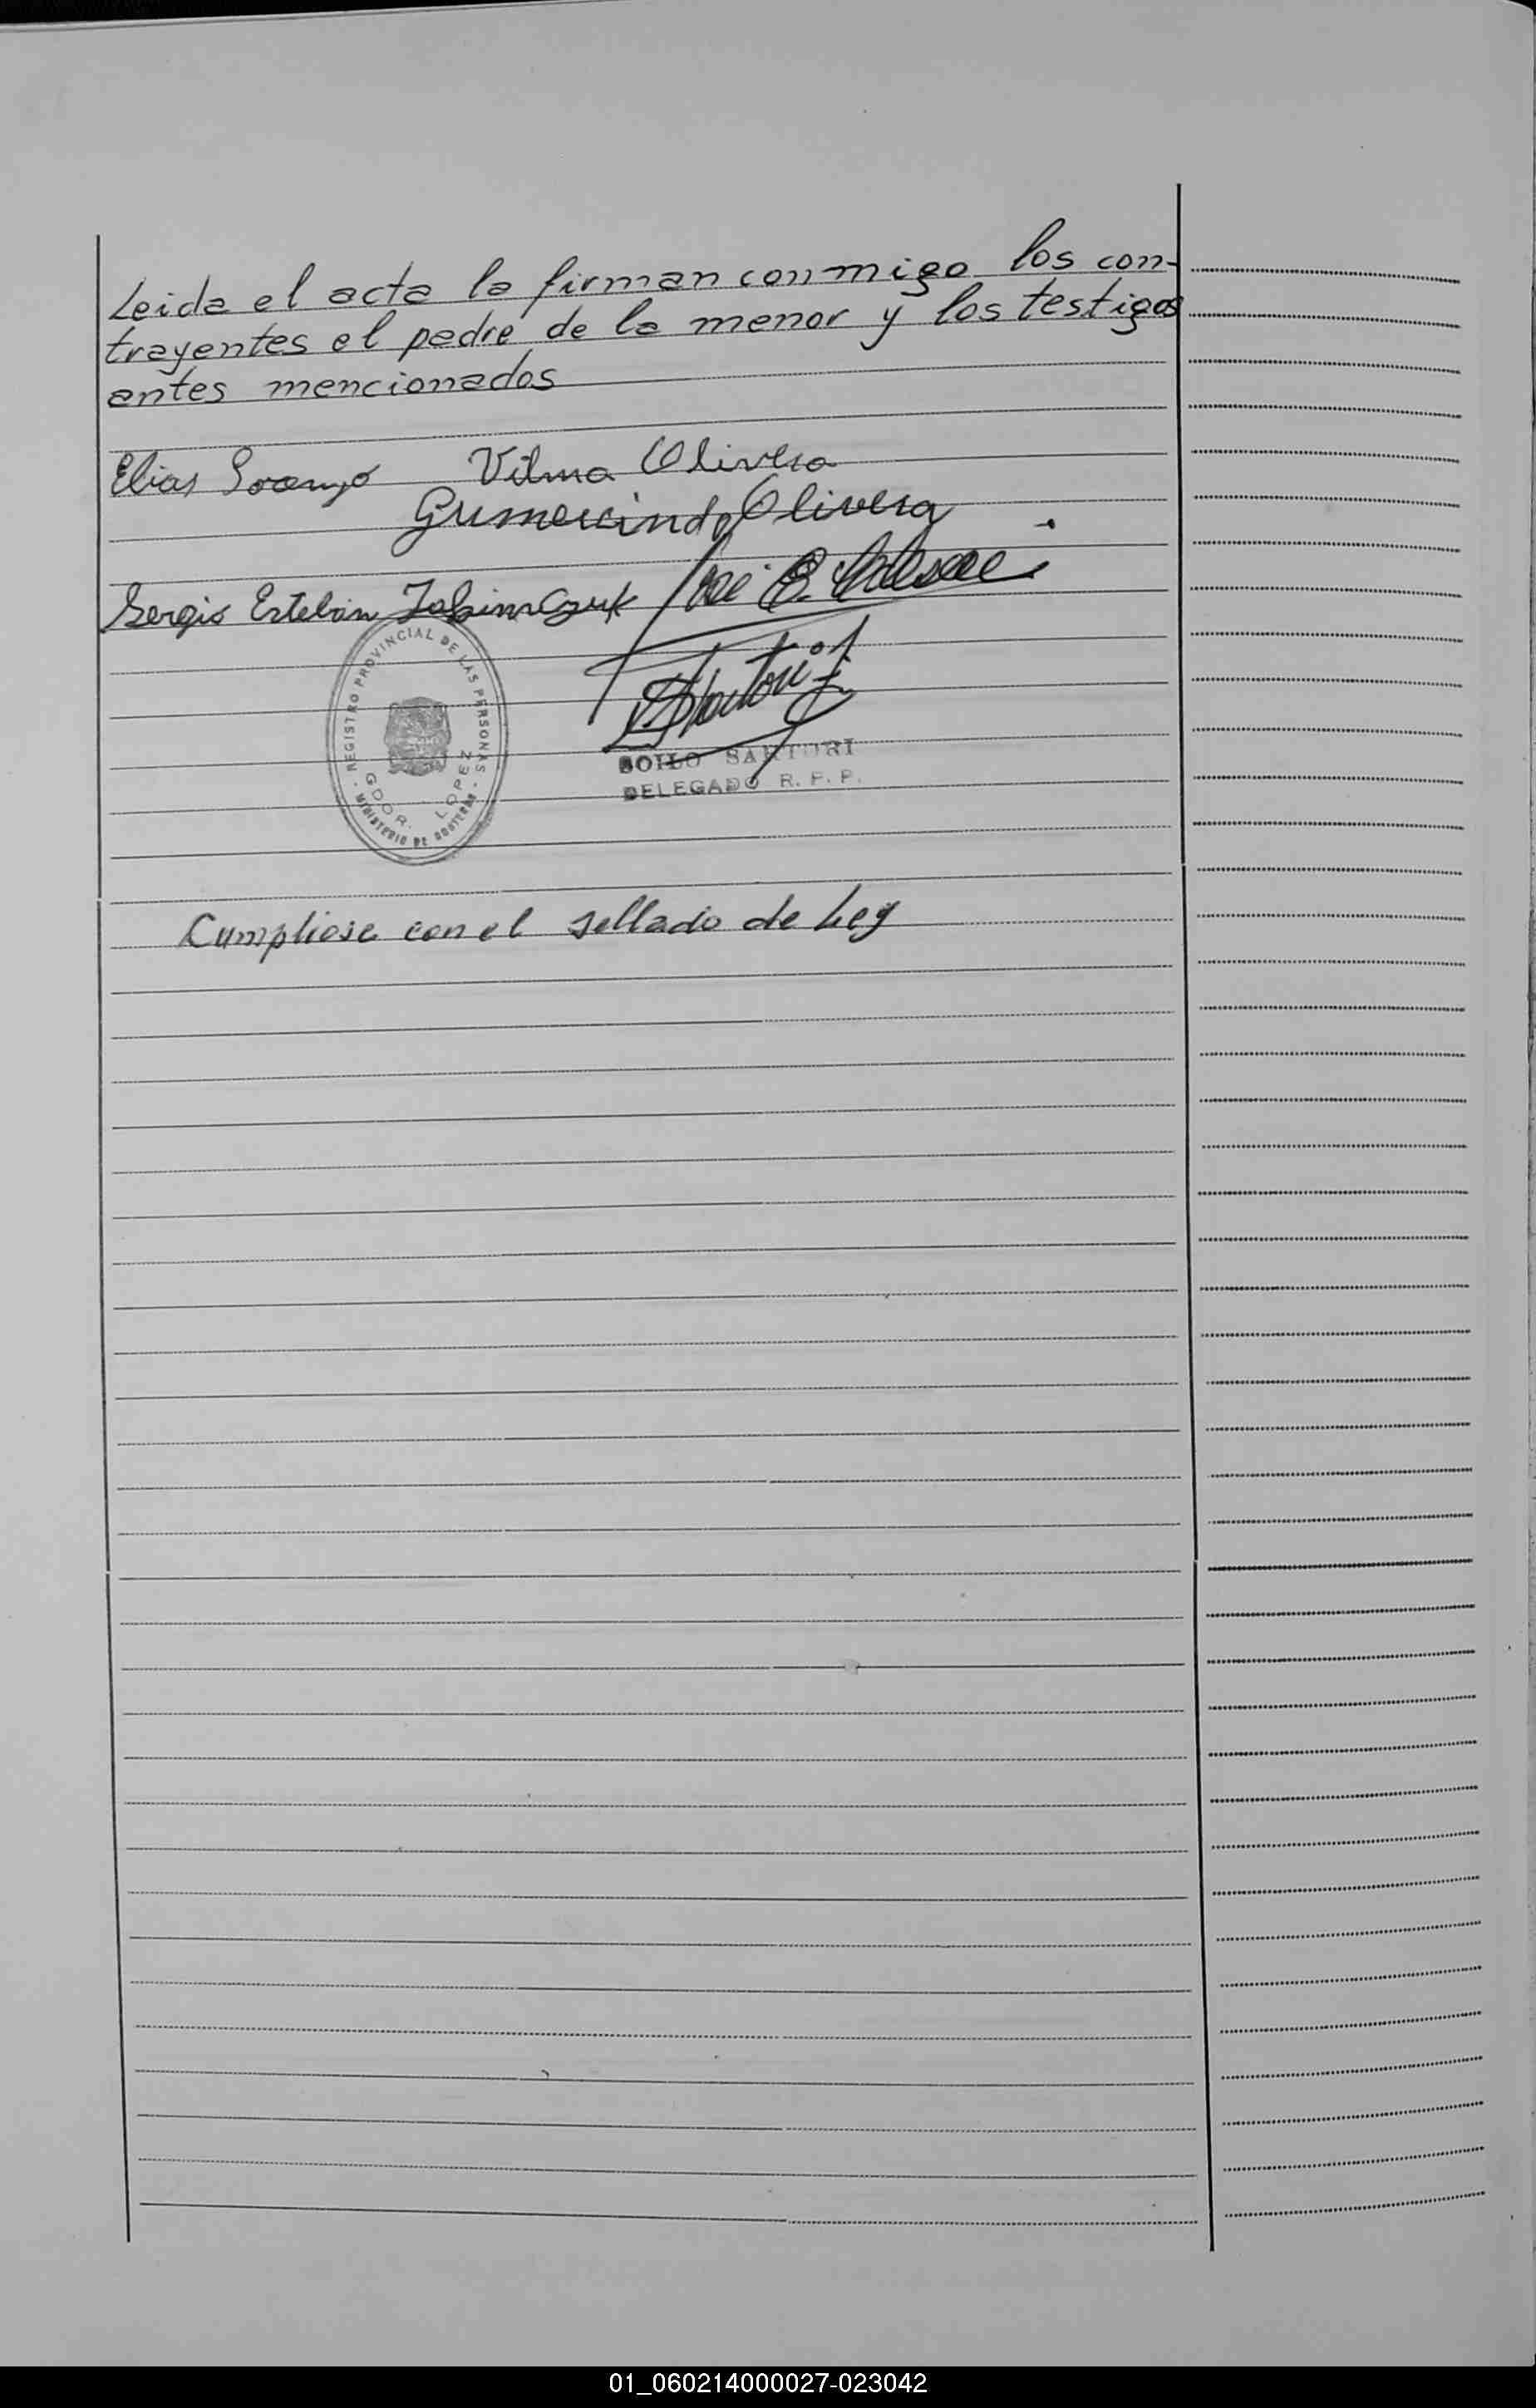 Leida el acta la firman conmigo los con-
trayentes el padre de la menor y los testigos
antes mencionados
Elias Vilma Olivera
Gumercindo Olivera
Sergio Esteban José E.
REGISTRO PROVINCIAL DE LAS PERSONAS
GDOR. LOPEZ
MINISTERIO DE GOBIERNO
SOILO SARTORI
DELEGADO R. P. P.
Cumpliose con el sellado de Ley
01_060214000027-023042